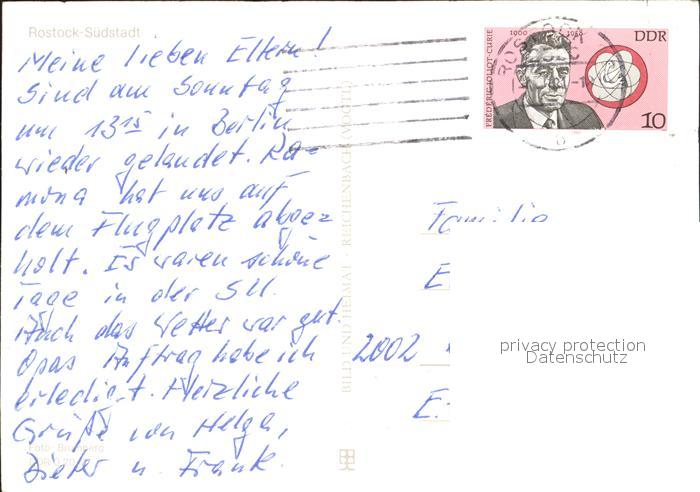 Rostock-Südstadt
Meine lieben Eltern!
Sind am Sonntag
um 13 15 in Berlin
wieder gelandet. Ra-
mona hat uns auf
dem Flugplatz abge-
holt. Es waren schöne
Tage in der SU.
Auch das Wetter war gut.
Opas Auftrag habe ich
erledigt. Herzliche
Grüße von Helga,
Dieter u. Frank.
BILD UND HEIMAT · REICHENBACH (VOGTL)
FRÉDÉRIC JOLIOT-CURIE
1900
DDR
10
Familie
E
2002
E
privacy protection
Datenschutz